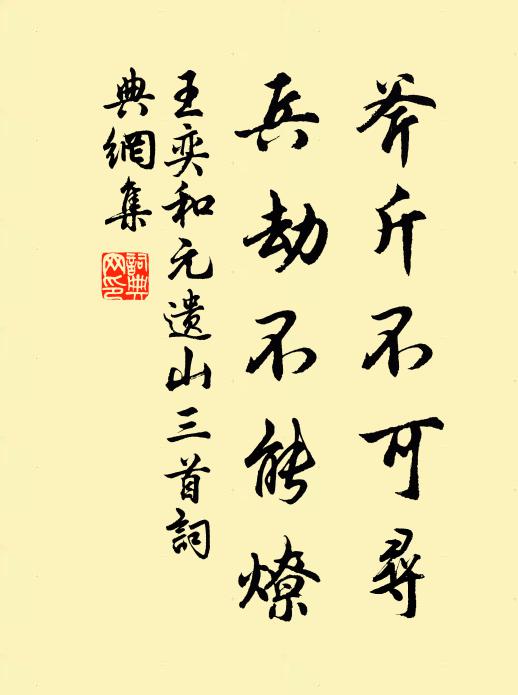 斧斤不可尋
兵劫不能燎
王奕和元遺山三首詞
典網集
詞典網印